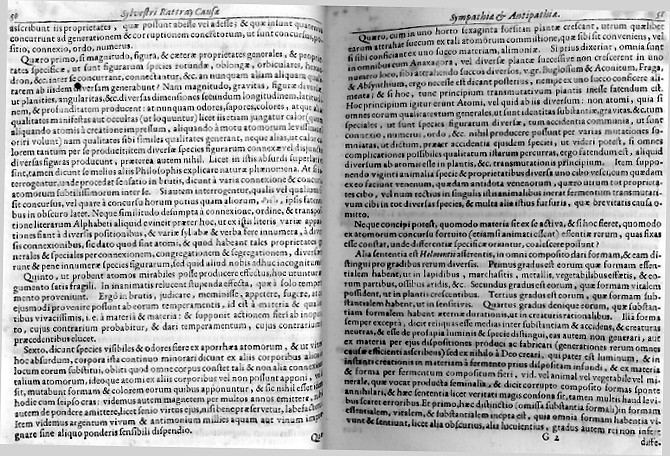 50 Sylvestri Rattray Causæ
ascribunt iis proprietates, quæ possunt abesse vel adesse; & quæ insunt quatenus
concurrunt ad generationem & corruptionem concretorum, ut sunt concursus, po-
sitio, connexio, ordo, numerus.
Quæro primo, si magnitudo, figura, & cæteræ proprietates generales, & proprie-
tates specificæ, ut sunt figurarum species rotundæ, oblongæ, orbiculares,
dron, & inter se concurrant, connectantur, &c. an nunquam aliam
tatem ab iisdem diversam generabunt? Nam magnitudo, gravitas, figuræ
ut planities, angularitas, &c. diversas dimensiones secundum longitudinem,
nem, & profunditatem producunt: at nunquam odores, sapores, colores, at
qualitates manifestas aut occultas (ut loquuntur) licet iis etiam jungatur calor
aliquando atomis à creatione impressum, aliquando à motu atomorum
oriri volunt) nam qualitates sibi similes qualitates generant, neque alias, ut
lorem tantum per se producit: item diversæ species figurarum connexæ vel disjunctæ
diversas figuras producunt, præterea autem nihil. Licet in istis absurdi superlativi
sint, tamen dicunt se melius aliis Philosophis explicare naturæ phænomena. At si
terrogentur, unde procedat sensatio in brutis, dicunt à varia connexione & concursu
atomorum subtilissimorum: iterum autem interrogentur, qualis vel qualium
sit concursus, vel quare à concursu horum potius quam aliorum, ipsis fatenti-
bus in obscuro latet. Neque similitudo desumpta à connexione, ordine, & transpo-
sitione literarum Alphabeti aliquid evincit præter hoc, ut ex istis literis, variæ appari-
tiones fiant à diversis positionibus, & variæ syllabæ & verba fere innumera, à diver-
sis connexionibus, sic dato quod sint atomi, & quod habeant tales proprietates ge-
nerales & speciales per connexionem, congregationem & segregationem, diversa
runt & pene innumeræ species figurarum, sed quid aliud nobis adhuc incognitum.
Quinto, ut probent atomos mirabiles posse producere effectus, hoc utuntur ar-
gumento satis fragili. In inanimatis relucent stupenda effecta, quæ à solo tempera-
mento proveniunt. Ergò in brutis, judicare, meminisse, appetere, fugere, at-
ejusmodi provenire possunt ab eorum temperamento, id est à materia & quali-
tatibus vivacissimis, i. e. à materia & materia: & supponit actionem fieri ab in-
to, cujus contrarium probabitur, & dari temperamentum, cujus contrarium
præcedentibus elucet.
Sexto, dicunt species visibiles & odores fieri ex aporrhœa atomorum, & ut vitent
hoc absurdum, corpora ista continuo minorari dicunt ex aliis corporibus aliquid
locum eorum substitui, obliti quod omne corpus constet tali & non alia connexione
talium atomorum, ideoque atomi ex aliis corporibus vel non possunt apponi, vel
sit, mutabunt formam & colorem eorum quibus apponuntur, & sic nihil esset idem
hodie cum seipso eras: videmus autem magnetem per multos annos emittere,
autem de pondere amittere, licet senio virtus ejus, nisi bene præservetur, labefactetur,
videmus antiquum vitrum & antimonium millies aquam aut vinum impra-
gnare sine aliquo ponderis sensibili dispendio.
Quæ-
Sympathiæ & Antipathiæ. 51
Quarto, cum in uno horto sexaginta forsitan plantæ crescant, utrum quælibet
earum attrahat succum ex tali atomorum commistione, quæ sibi sit conveniens, vel
an sibi conficiant ex uno sugeo materiam, alimoniæ. Si prius dixerint, omnia sunt
in omnibus cum Anaxagora, vel diversæ plantæ successive non crescerent in uno
numero loco, sibi attrahendo succos diversos, v. gr. Buglossium & Aconitum, Fraga,
& Absynthium, ergò necesse est dicant posterius, nempe ex uno succo conficere ali-
menta; & si hoc, tunc principium transmutativum plantis inesse fatendum est.
Hoc principium igitur erunt Atomi, vel quid ab iis diversum: non atomi, quia si
omnes eorum qualitates tum generales, ut sunt identitas substantiæ, gravitas, &c. tum
speciales, ut sunt species figurarum diversæ, tum accidentia communia, ut sunt
connexio, numerus, ordo, &c. nihil producere possunt per varias mutationes fo-
mniatas, ut dictum, præter accidentia ejusdem speciei, ut videri potest, si omnes
complicationes possibiles qualitatum istarum percurras, ergò fatendum est, aliquid
diversum ab atomis esse in plantis, &c. transmutationis principium. Item suppo-
nendo viginti animalia specie & proprietatibus diversa uno cibo vesci, cum quædam
ex eo faciunt venenum, quædam antidota venenorum, quæro utrum tot proprieta-
tes cibi, id num rectius in singulis istis animalibus inerat fermentum transmutati-
vum cibi in tot diversas species, & multa alia istius furfuris, quæ brevitatis causa o-
mitto.
Neque concipi potest, quomodo materia sit ex se activa, & si hoc fieret, quomodo
ex atomorum concursu fortuito (etiamsi animati essent) effentiæ rerum, quas fixas
esse constat, unde differentiæ specificæ oriantur, coalescere possunt?
Alia sententia est Helmontii asserentis, in omni composito dari formam, & eam di-
stingui pro gradibus rerum diversis. Primus gradus est eorum quæ formam essen-
tialem habent, ut in lapidibus, marchasitis, metallis, vegetabilibus exsectis, & eo-
rum partibus, ossibus aridis, &c. Secundus gradus est eorum, quæ formam vitalem
possident, ut in plantis crescentibus. Tertius gradus est eorum, quæ formam sub-
stantialem habent, ut in sensitivis. Quartus gradus denique eorum, quæ substan-
tiam formalem habent æternæ durationis, ut in creaturis rationalibus. Illa forma
semper excepta, dicit reliquas esse medias inter substantiam & accidens, & creaturas
neutras, & esse de prosapia luminis & specie distinctas, eas autem non generari, aut
ex materia per ejus dispositiones produci ac fabricari (generationes rerum omnes
causæ efficienti ascribens) sed ex nihilo à Deo creari, qui pater est luminum, & in
instanti creationis in materiam à fermento prius dispositam infundi, & ex materia
& forma per fermentum compositum fieri, vid. vel animal vel vegetabile vel mi-
nerale, quæ vocat producta seminalia, & dicit corrupto composito formas sponte
annihilari, & hæc sententia licet veritati magis consona sit, tamen multis haud le-
vibus scatet erroribus. Et primo, hæc distinctio (omissa substantia formali) in formam
essentialem, vitalem, & substantialem inepta est, quia quæ essentialem habent vi-
vunt & sentiunt, licet alia obscurius, alia luculentius, gradus autem rei non infert
G 2 diffe-